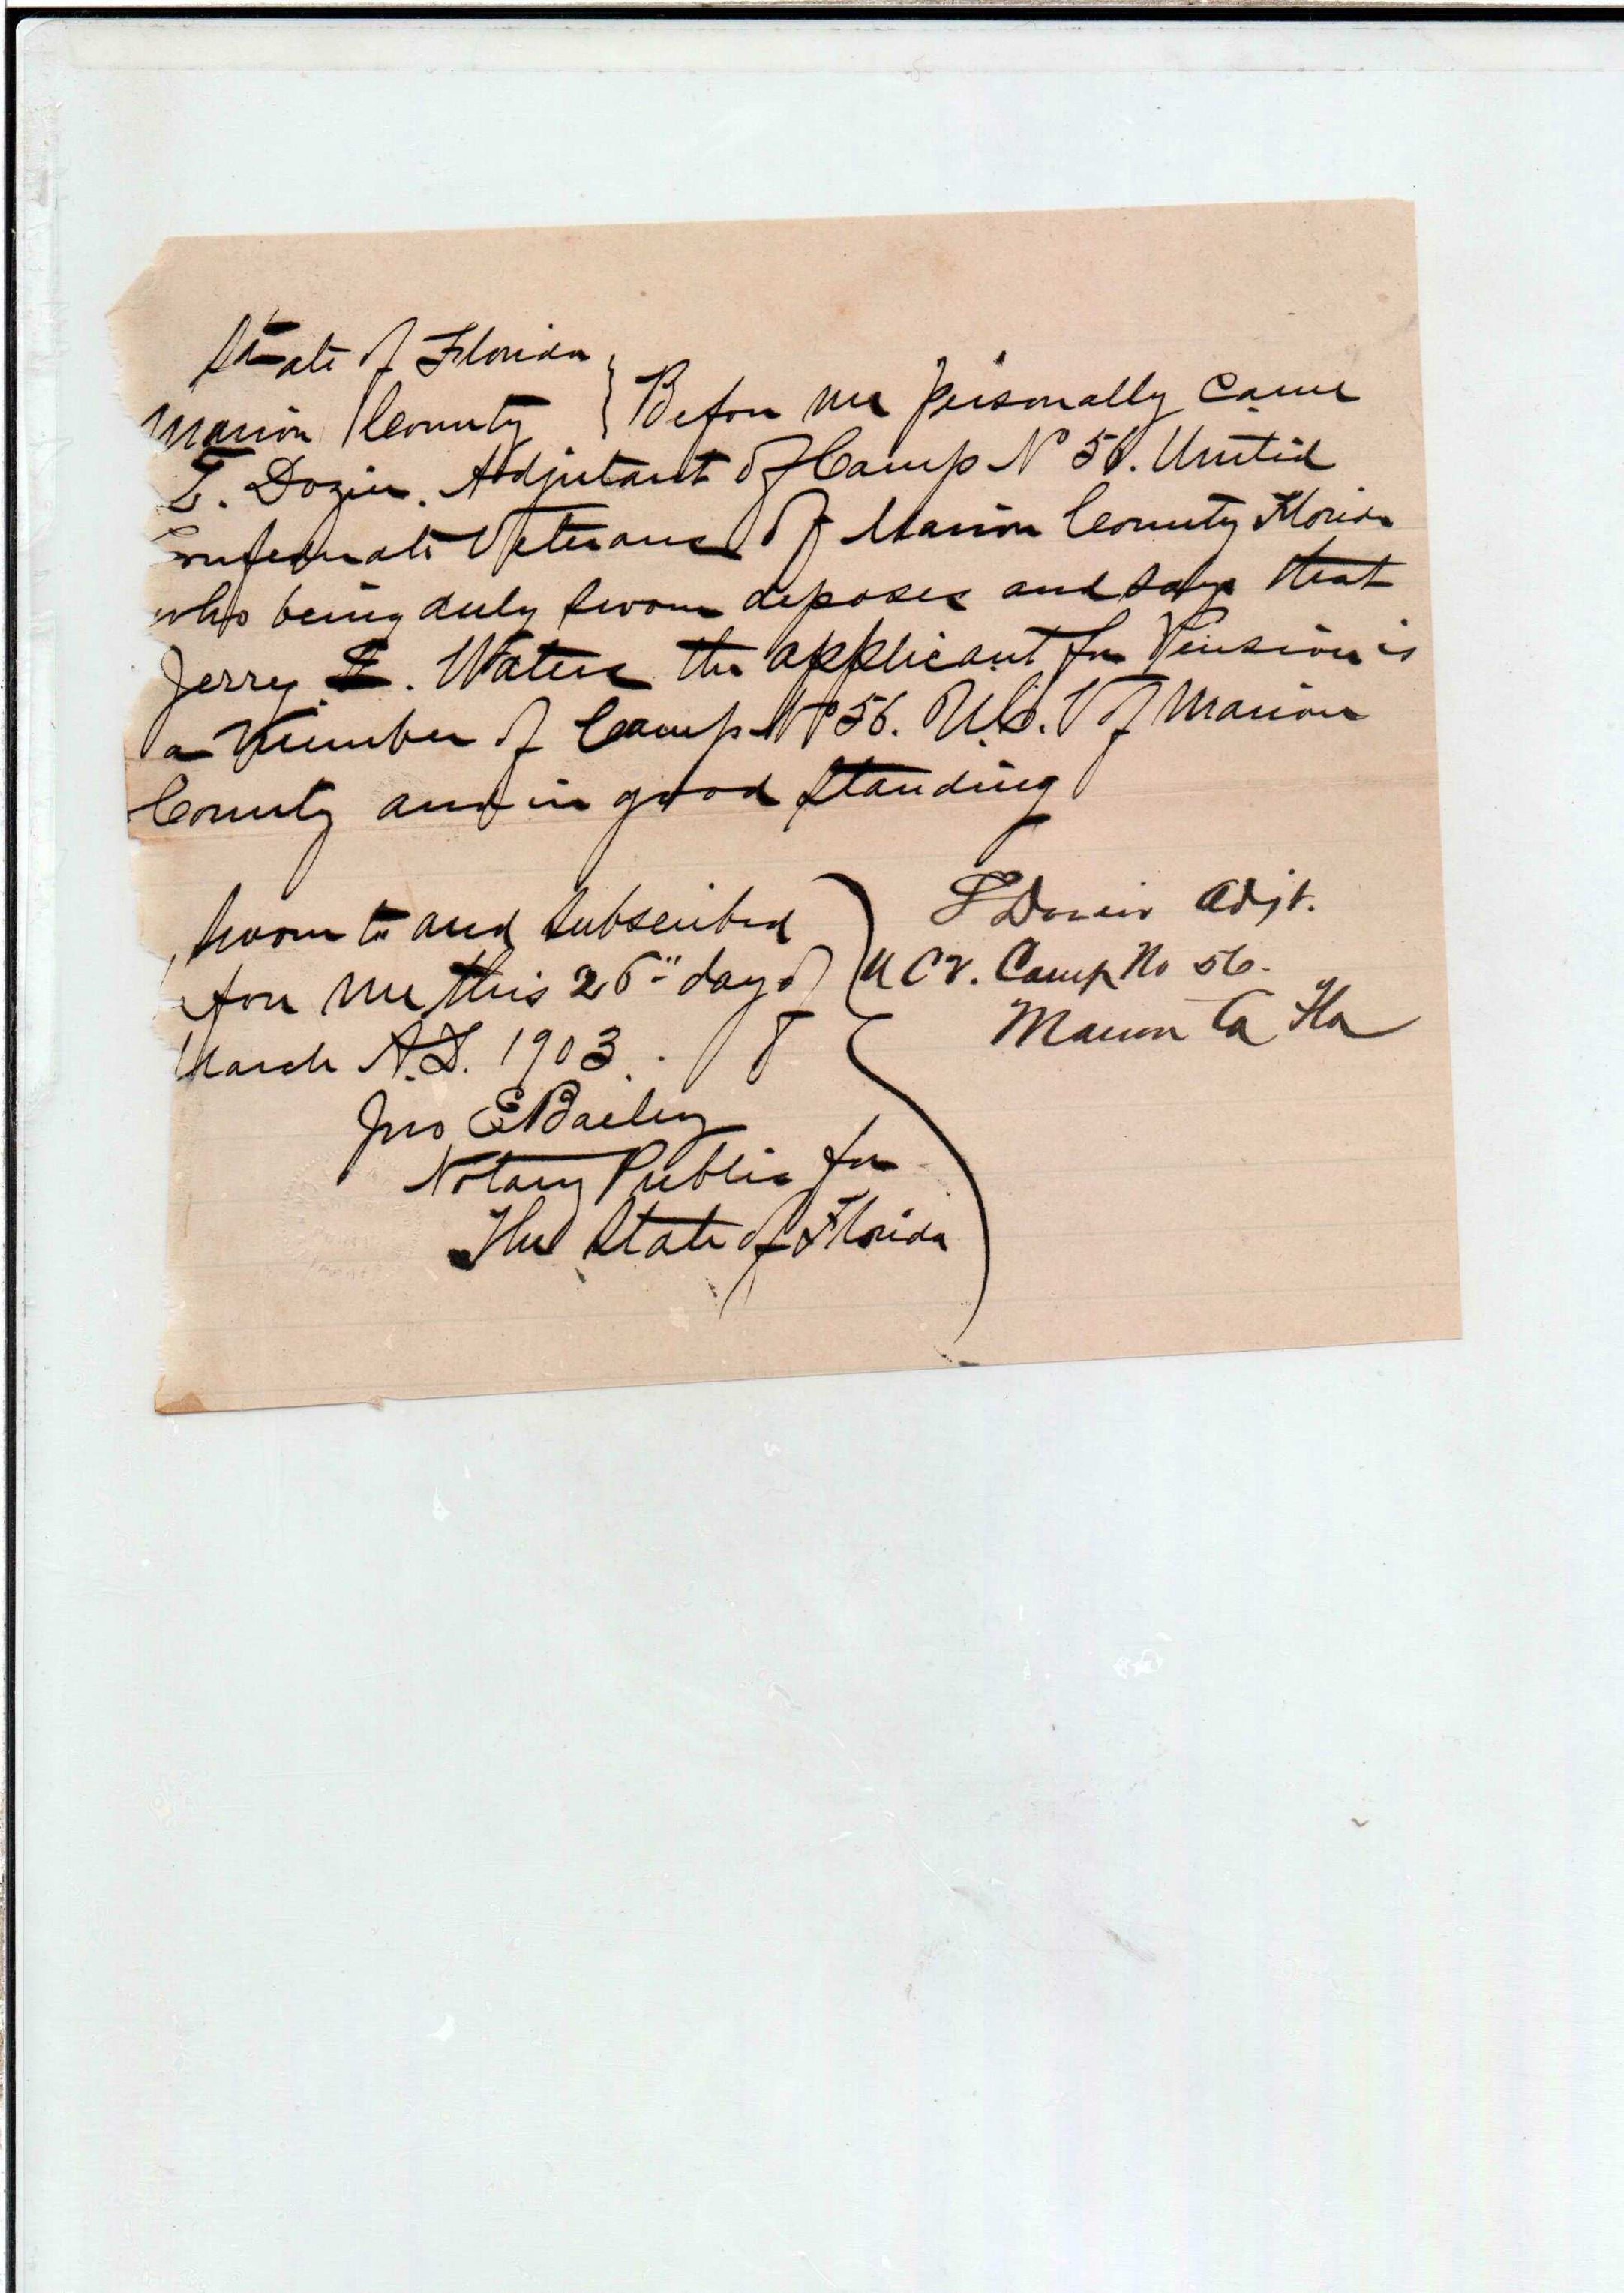 State of Florida
Marion County } Before me personally came
L. Dozier. Adjutant of Camp No 56. United
Confederate Veterans of Marion County Florida
who being duly sworn deposes and says that
Jerry Waters the applicant for Pension is
a member of Camp No 56. U.C.V of Marion
County and in good standing
Sworn to and subscribed
efore me this 26" day of
March A.D. 1903.
Jno E Bailey
Notary Public for
The State of Florida
L Dozier Adjt.
U C V. Camp No 56.
Marion Co Fla